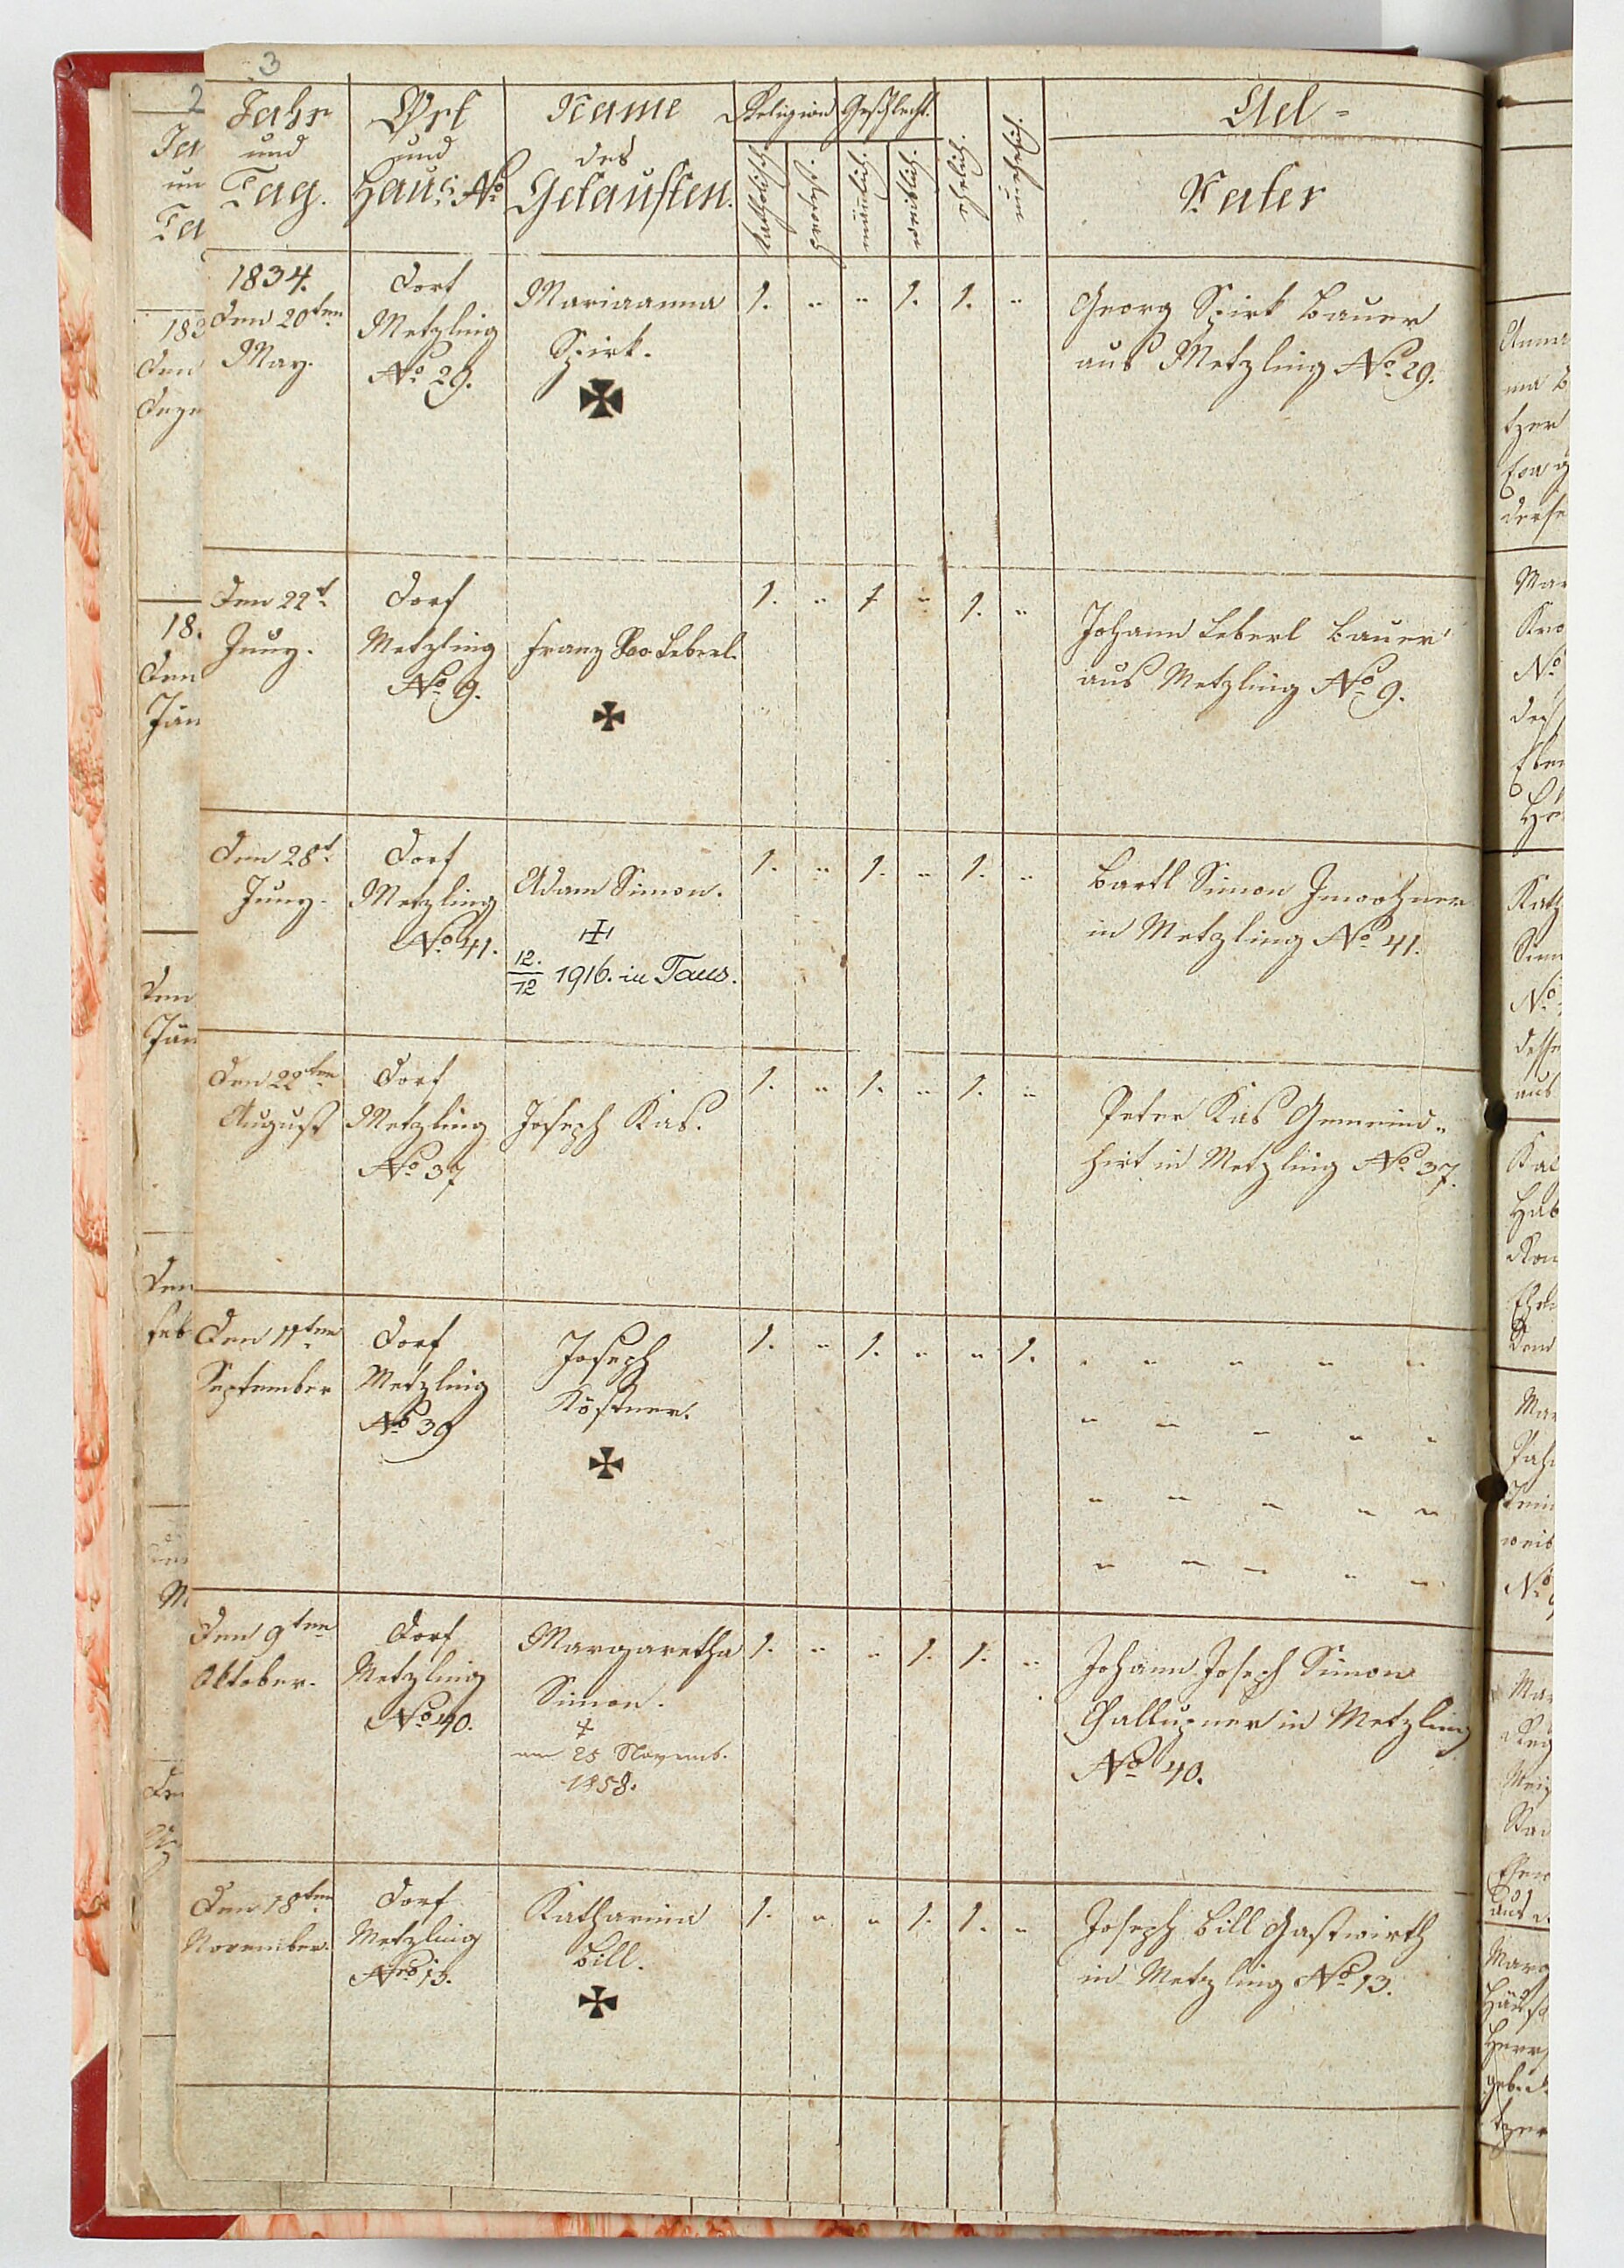 3
Jahr
und
Tag.
Ort
und
Haus No
Name
des
Getauften.
Religion
Geschlecht.
katholisch.
protest.
männlich.
weiblich.
ehelich.
unehelich.
Ael-
Vater
1834.
Den 20ten
May.
Dorf
Metzling
No 29.
Mariaanna
Spirk.
1. " " 1. 1. "
Georg Spirk Bauer
aus Metzling No 29.
Den 22t
Juny.
Dorf
Metzling
No 9.
Franz Leberl.
1. " 1 " 1. "
Johann Leberl Bauer
aus Metzling No 9.
Den 28t
Juny.
Dorf
Metzling
No 41.
Adam Simon.
12.
12 1916. in Taus.
1. " 1. " 1. "
Bartl Simon Inwohner
in Metzling No 41.
Den 22ten
August
Dorf
Metzling
No 37
Joseph Kas.
1. " 1. " 1. "
Peter Kas Gemeind-
hirt in Metzling No 37.
Den 11ten
September
Dorf
Metzling
No 39
Joseph
Köstner.
1. " 1. " " 1.
Den 9ten
Oktober.
Dorf
Metzling
No 40.
Margaretha
Simon.
am 25 Novemb.
1858.
1. " " 1. 1. "
Johann Joseph Simon
in Metzling
No 40.
Den 18ten
November.
Dorf
Metzling
Nro 13.
Katharina
Bill.
1. " " 1. 1. "
Joseph Bill Gastwirth
in Metzling No 13.